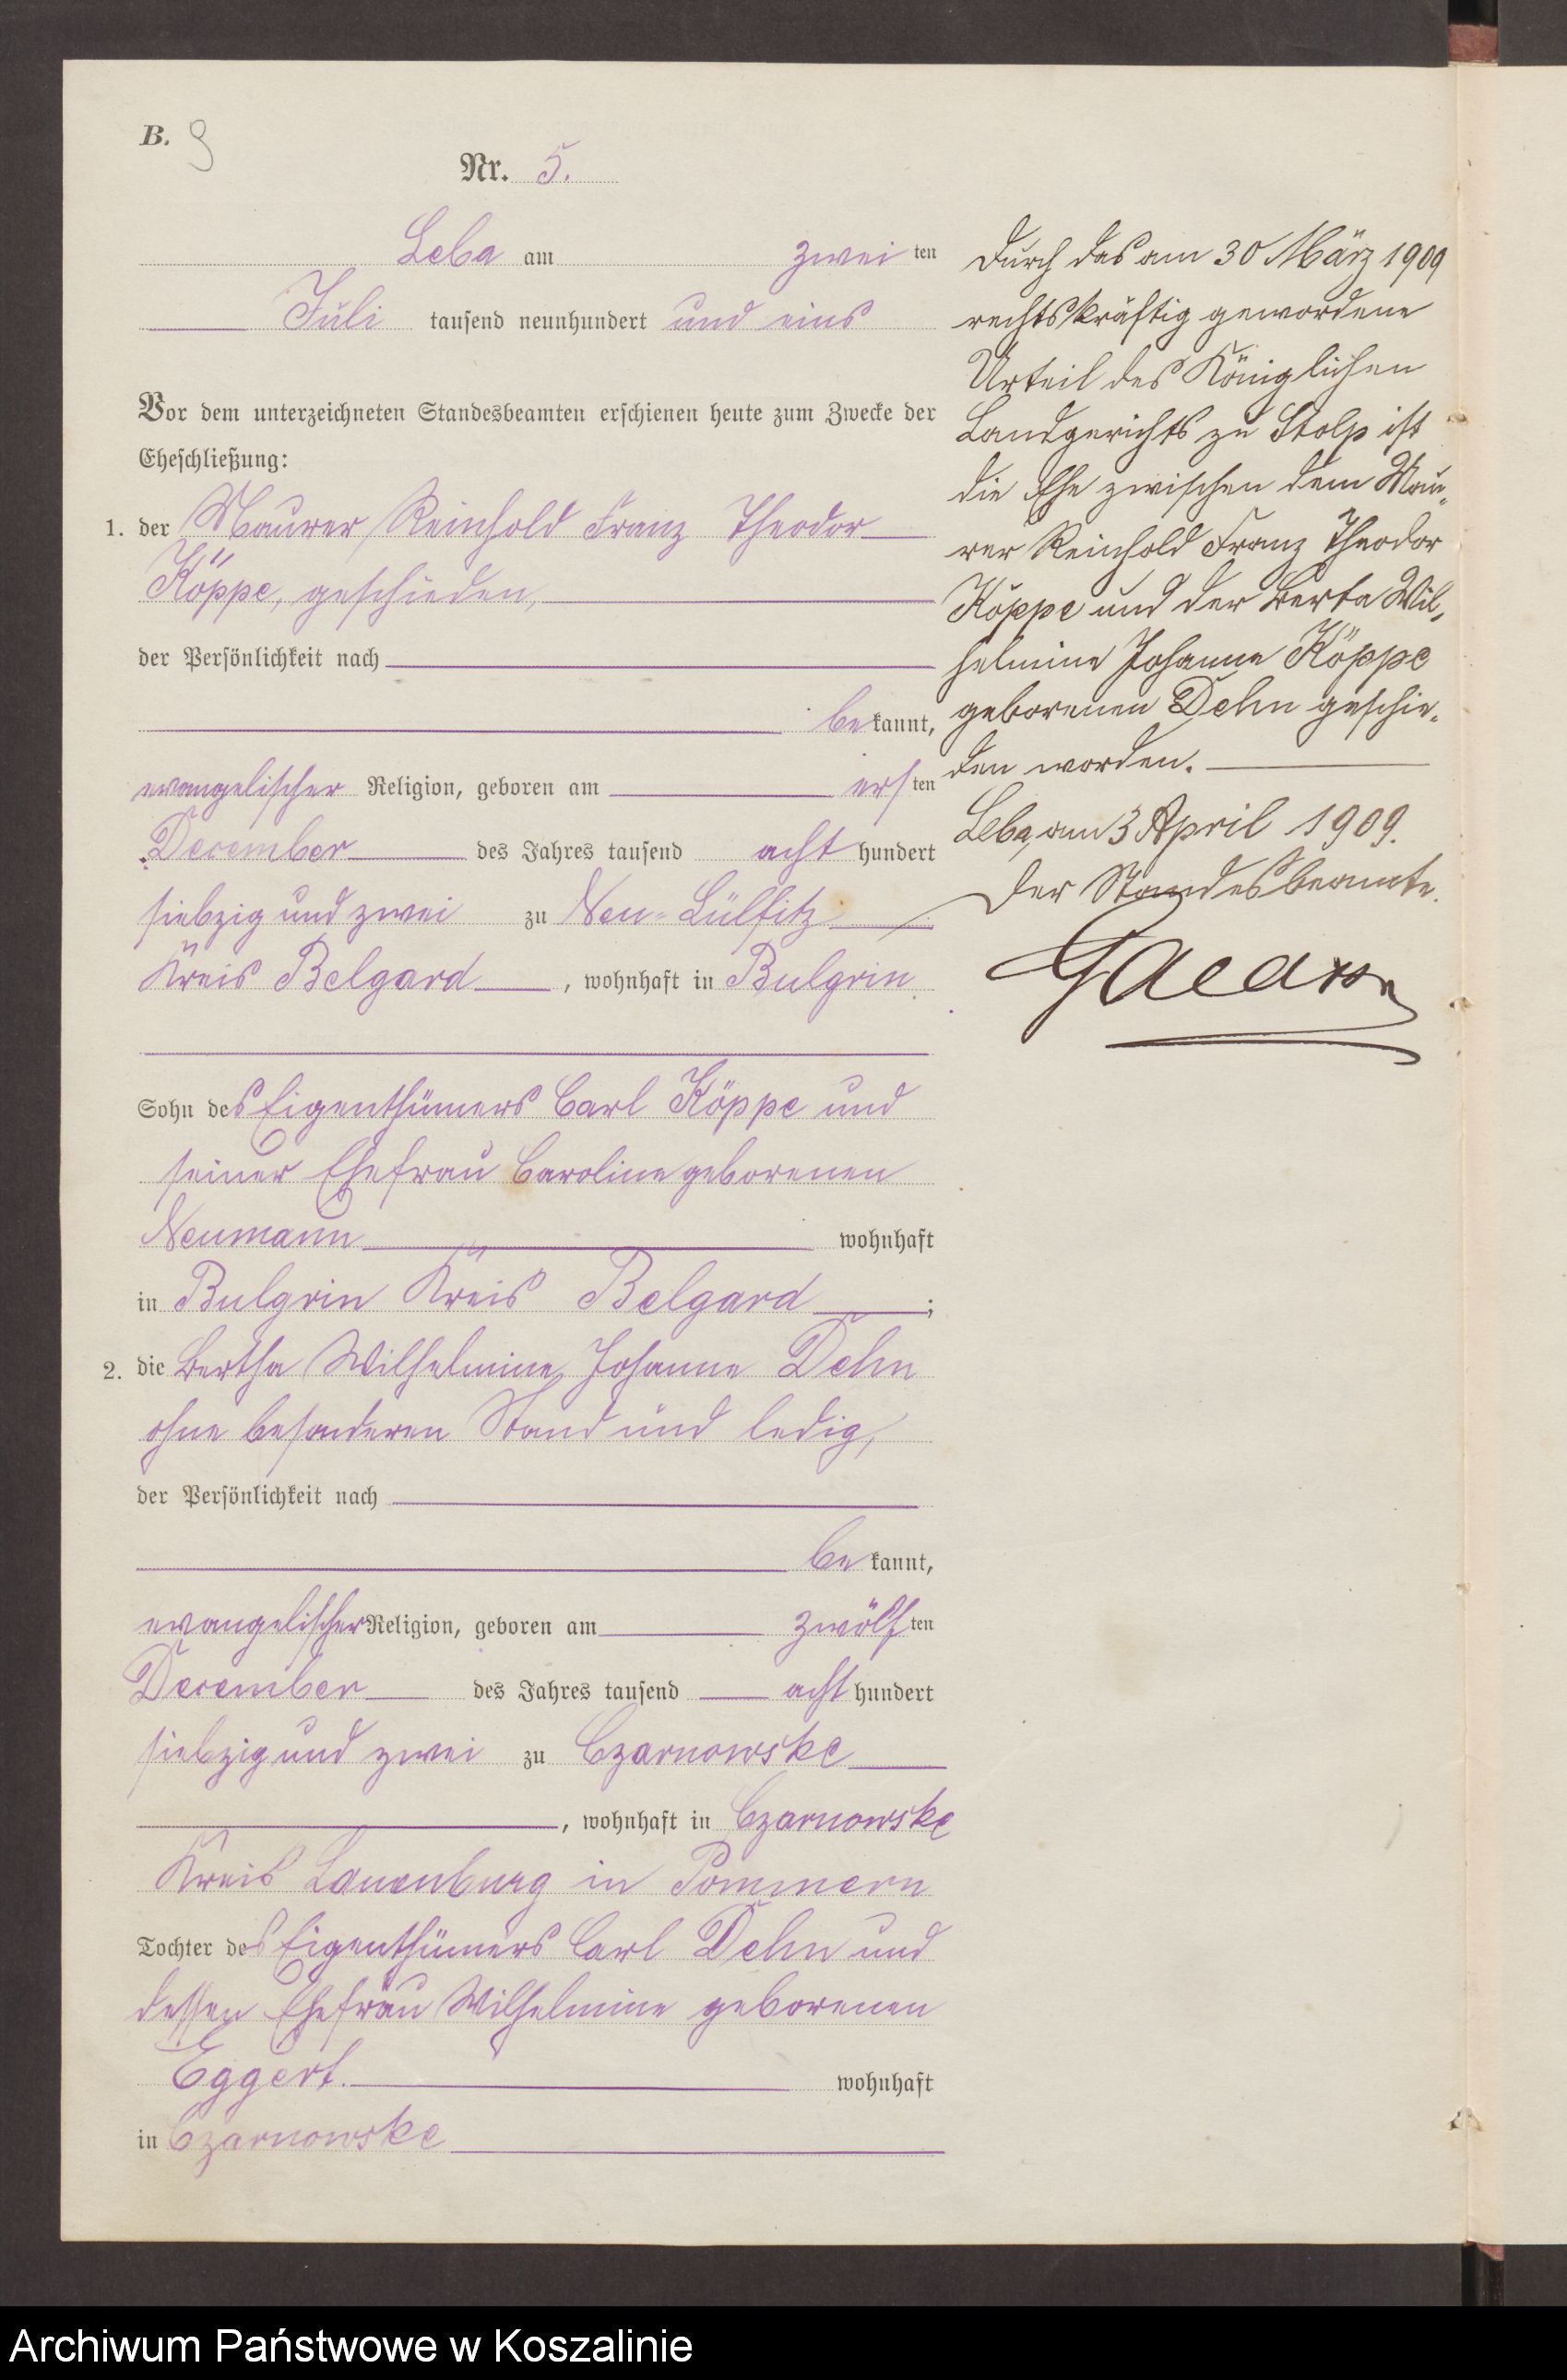 B. 9
Nr. 5.
Leba am zwei ten
Juli tausend neunhundert und eins
Vor dem unterzeichneten Standesbeamten erschienen heute zum Zwecke der
Eheschließung:
1. der Maurer Reinhold Franz Theodor
Köppe, geschieden,
der Persönlichkeit nach
be kannt,
evangelischer Religion, geboren am ers ten
December des Jahres tausend acht hundert
siebzig und zwei zu Neu-Lülfitz
Kreis Belgard, wohnhaft in Bulgrin
Sohn des Eigenthümers Carl Köppe und
seiner Ehefrau Caroline geborenen
Neumann wohnhaft
in Bulgrin Kreis Belgard ;
2. die Bertha Wilhelmine Johanne Dehn
ohne besonderen Stand und ledig,
der Persönlichkeit nach
be kannt,
evangelischer Religion, geboren am zwölf ten
December des Jahres tausend acht hundert
siebzig und zwei zu Czarnowske
, wohnhaft in Czarnowske
Kreis Lauenburg in Pommern
Tochter des Eigenthümers Carl Dehn und
dessen Ehefrau Wilhelmine geborenen
Eggert. wohnhaft
in Czarnowske
Durch das am 30 März 1909
rechtskräftig gewordene
Urteil des Königlichen
Landgerichts zu Stolp ist
die Ehe zwischen dem Mau-
rer Reinhold Franz Theodor
Köppe und der Berta Wil-
helmine Johanne Köppe
geborenen Dehn geschie-
den worden.
Leba, am 3 April 1909.
Der Standesbeamte.
Archiwum Państwowe w Koszalinie